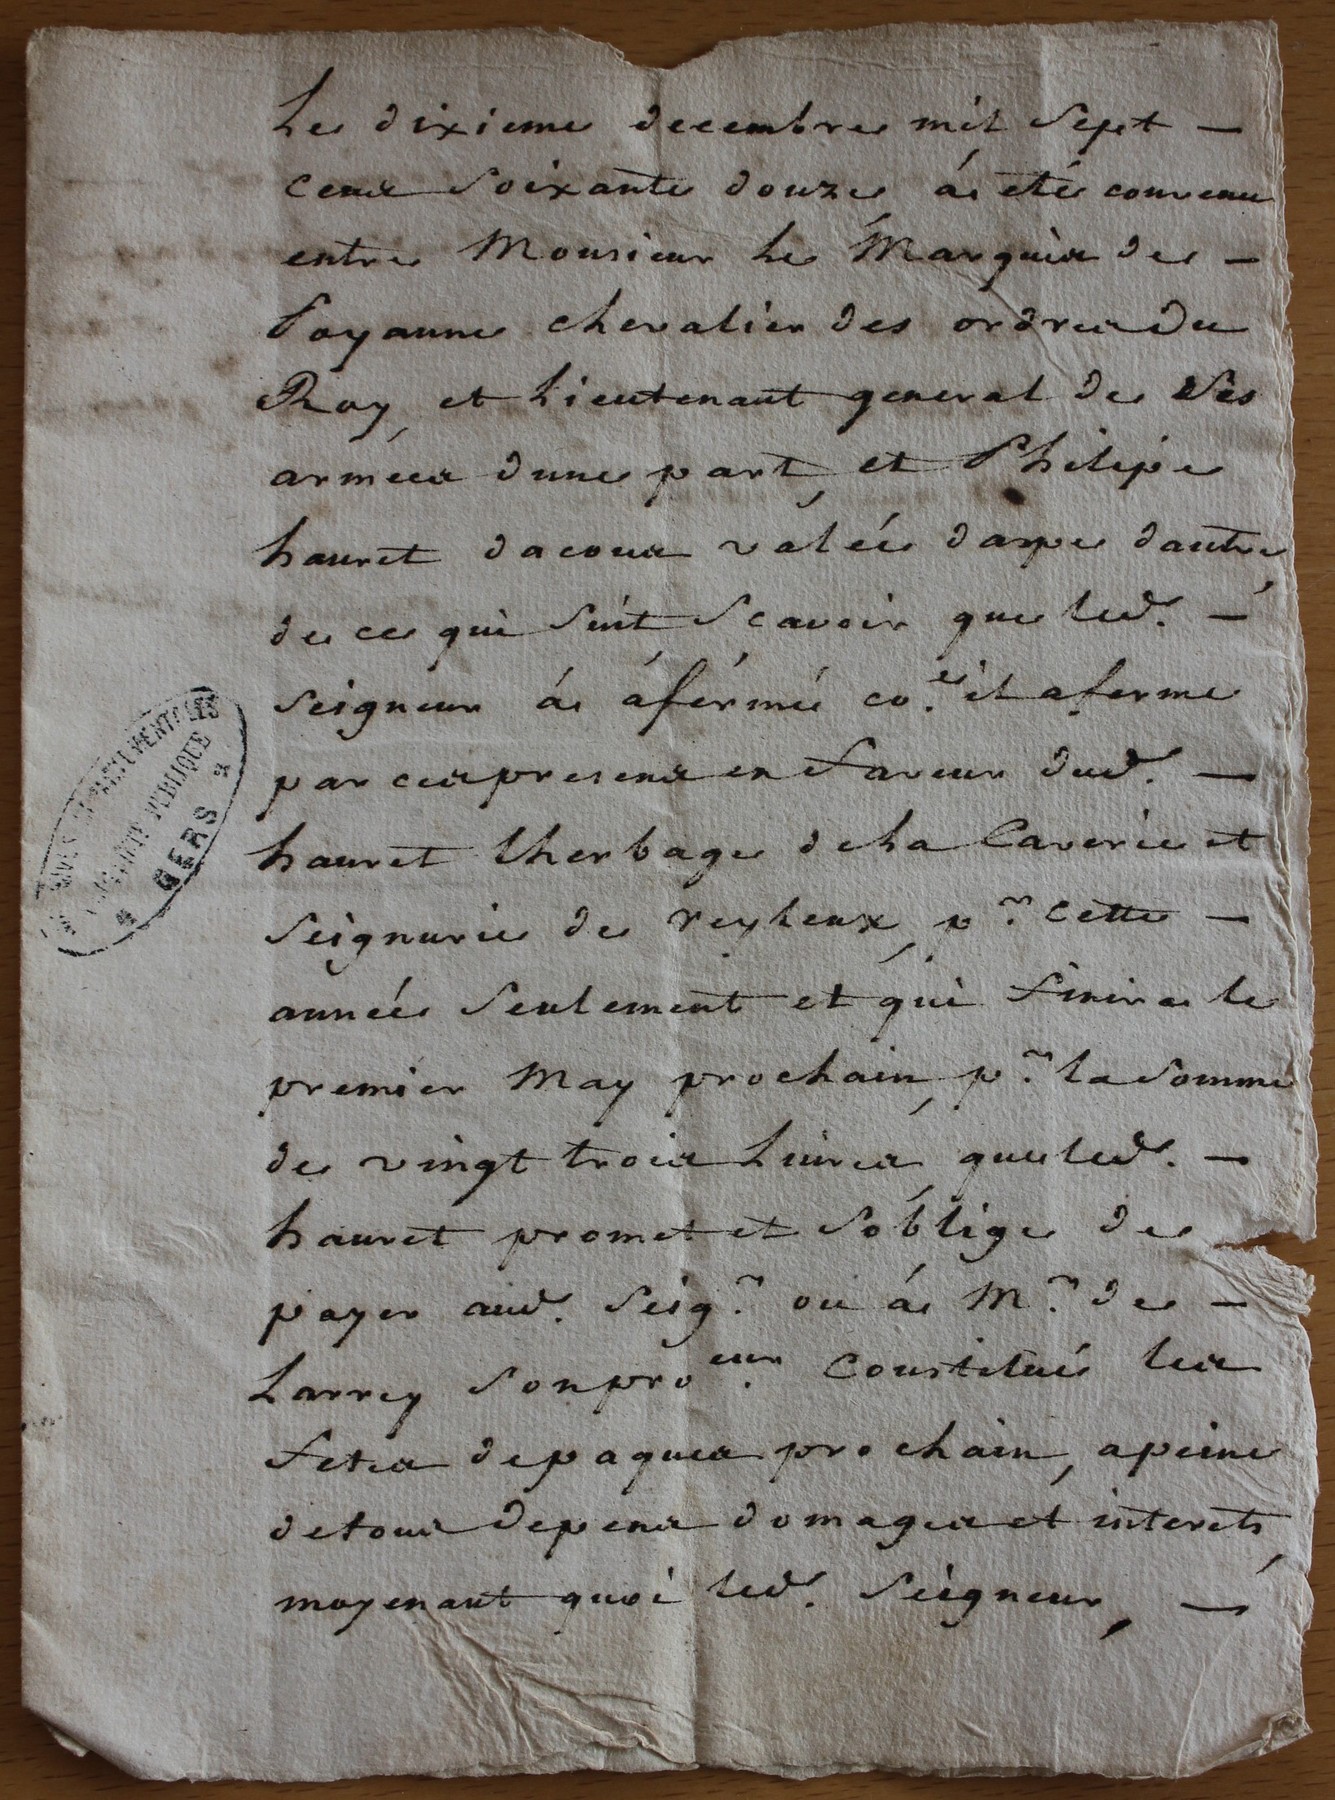 Le dixieme decembre mil sept –
cens soixante douze á eté convenu
entre Monsieur le Marquis de –
Poyanne chevalier des ordres du
Roy, et Lieutenant general de ses
armées dune part, et Philipe
hauret dacous valée daspe dautre,
de ce qui suit Scavoir que led. –
seigneur á áfermé co.e il aferme
par ces presens en faveur dud. –
hauret lherbage de la Caverie et
seignurie de reyleux, p.r cette –
année seulement et qui finira le
premier May prochain, p.r la somme
de vingt trois Livres, que led. –
hauret promet et soblige de
payer aud. Seig.r ou á M.r de –
Larrey son pro.eur constitué les
fetes de paques prochain, a peine
de tous depens domages et interets,
moyenant quoi led. Seigneur, –
ARCHIVES DEPARTEMENTALES
PROPRIÉTÉ PUBLIQUE
* GERS *